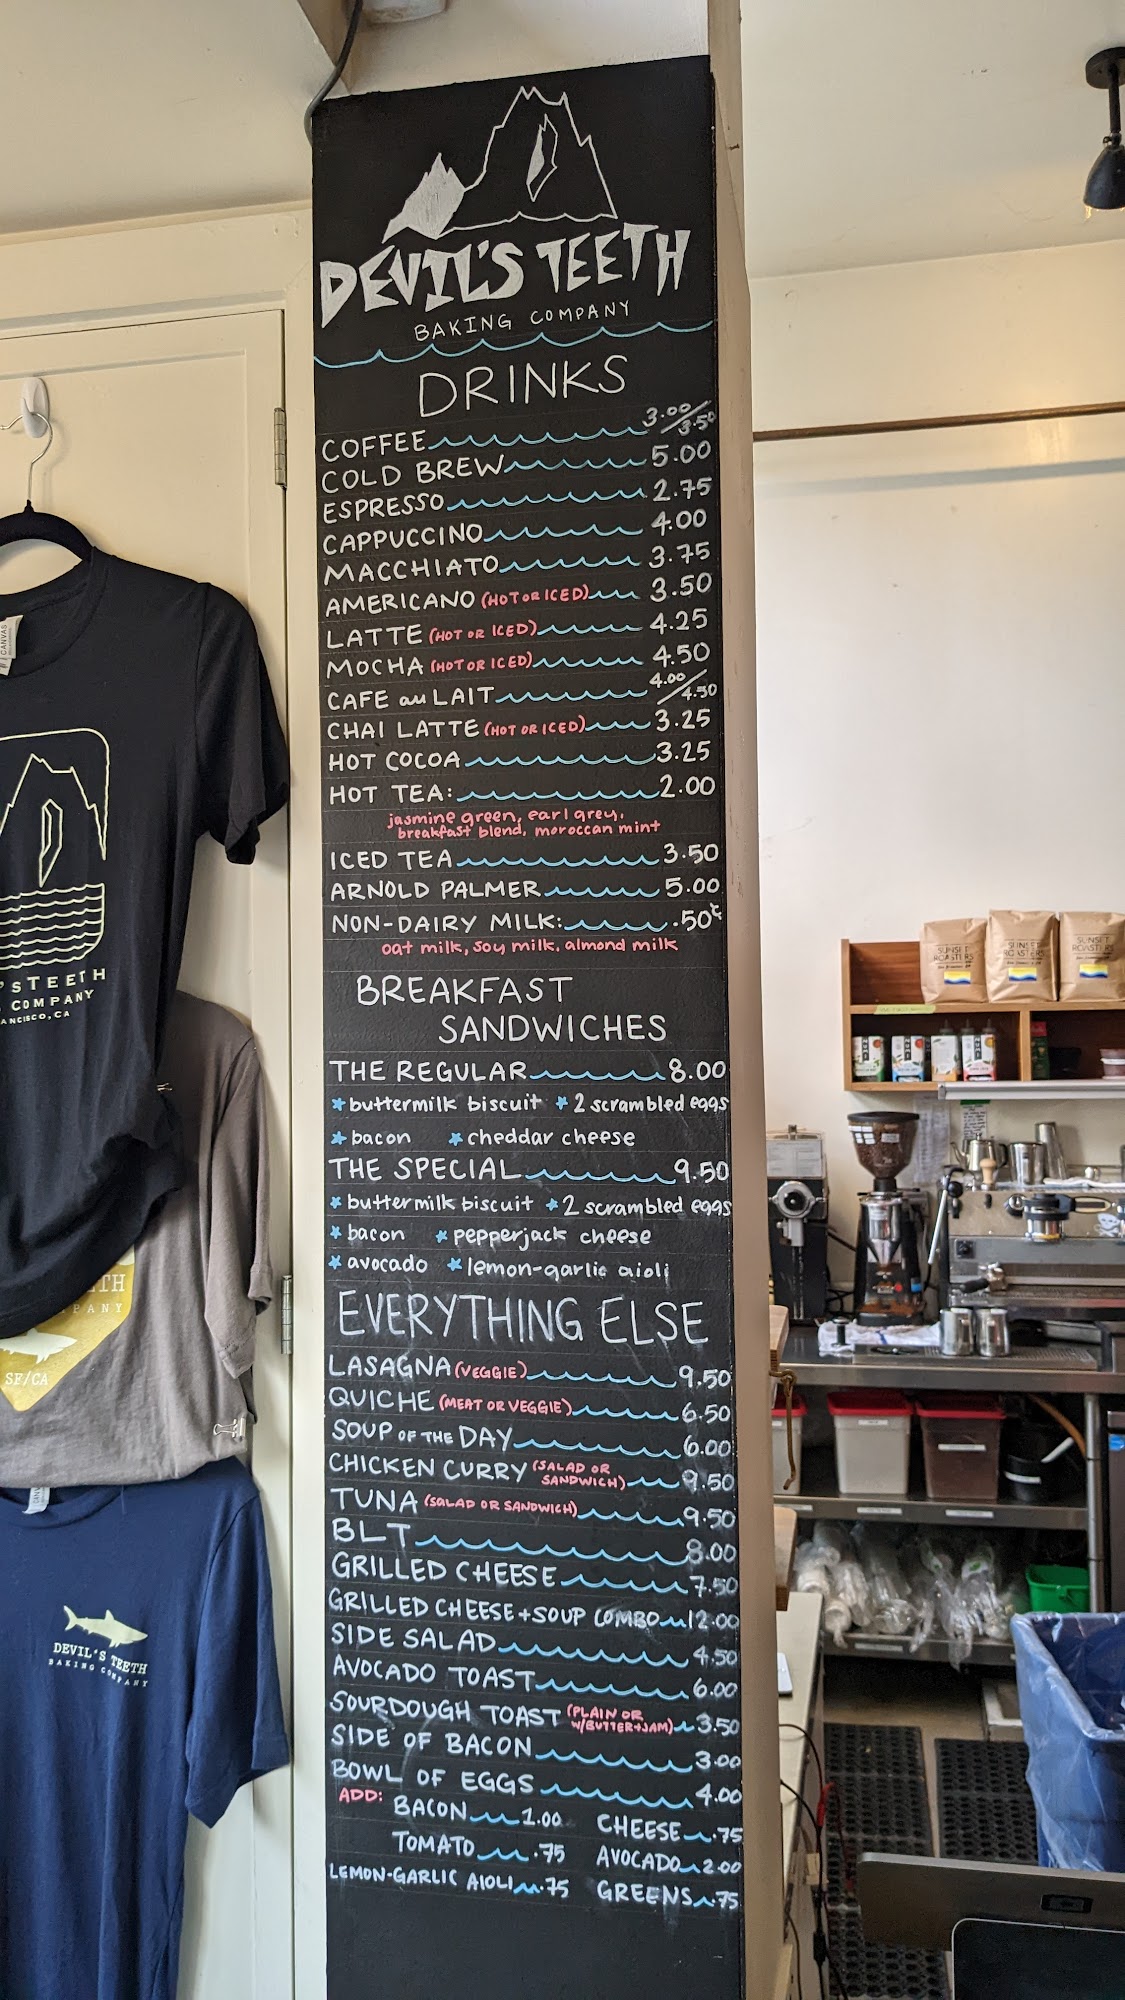 DEVIL'S TEETH
BAKING COMPANY
DRINKS
COFFEE 3.00/3.50
COLD BREW 5.00
ESPRESSO 2.75
CAPPUCCINO 4.00
MACCHIATO 3.75
AMERICANO (HOT OR ICED) 3.50
LATTE (HOT OR ICED) 4.25
MOCHA (HOT OR ICED) 4.50
CAFE au LAIT 4.00/4.50
CHAI LATTE (HOT OR ICED) 3.25
HOT COCOA 3.25
HOT TEA: 2.00
jasmine green, earl grey,
breakfast blend, moroccan mint
ICED TEA 3.50
ARNOLD PALMER 5.00
NON-DAIRY MILK: .50¢
oat milk, soy milk, almond milk
BREAKFAST
SANDWICHES
THE REGULAR 8.00
buttermilk biscuit 2 scrambled eggs
bacon cheddar cheese
THE SPECIAL 9.50
buttermilk biscuit 2 scrambled eggs
bacon pepperjack cheese
avocado lemon-garlic aioli
EVERYTHING ELSE
LASAGNA (VEGGIE) 9.50
QUICHE (MEAT OR VEGGIE) 6.50
SOUP OF THE DAY 6.00
CHICKEN CURRY (SALAD OR
SANDWICH) 9.50
TUNA (SALAD OR SANDWICH) 9.50
BLT 8.00
GRILLED CHEESE 7.50
GRILLED CHEESE + SOUP COMBO 12.00
SIDE SALAD 4.50
AVOCADO TOAST 6.00
SOURDOUGH TOAST (PLAIN OR
W/BUTTER+JAM) 3.50
SIDE OF BACON 3.00
BOWL OF EGGS 4.00
ADD: BACON 1.00 CHEESE .75
TOMATO .75 AVOCADO 2.00
LEMON-GARLIC AIOLI .75 GREENS .75
CANVAS
'S TEETH
COMPANY
ANCISCO, CA
ETH
MPANY
SF/CA
DEVIL'S TEETH
BAKING COMPANY
SUNSET
ROASTERS
SUNSET
ROASTERS
SUNSET
ROASTERS